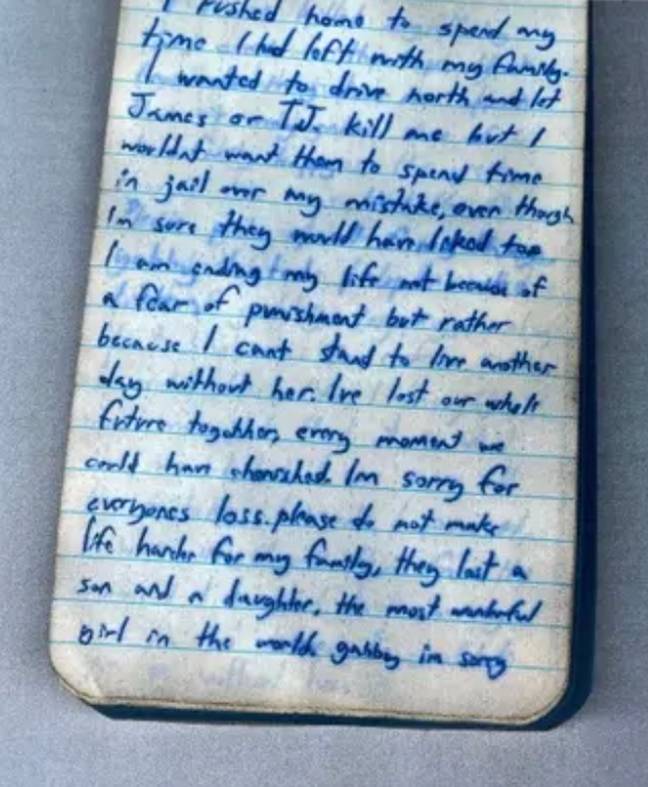 I rushed home to spend my
time I had left with my family.
I wanted to drive north and let
James or TJ kill me but I
wouldnt want them to spend time
in jail over my mistake, even though
Im sure they would have liked too
I am ending my life not because of
a fear of punishment but rather
because I cant stand to live another
day without her. Ive lost our whole
future together, every moment we
could have cherished. Im sorry for
everyones loss. please do not make
life harder for my family, they lost a
son and a daughter. the most wonderful
girl in the world. gabby im sorry